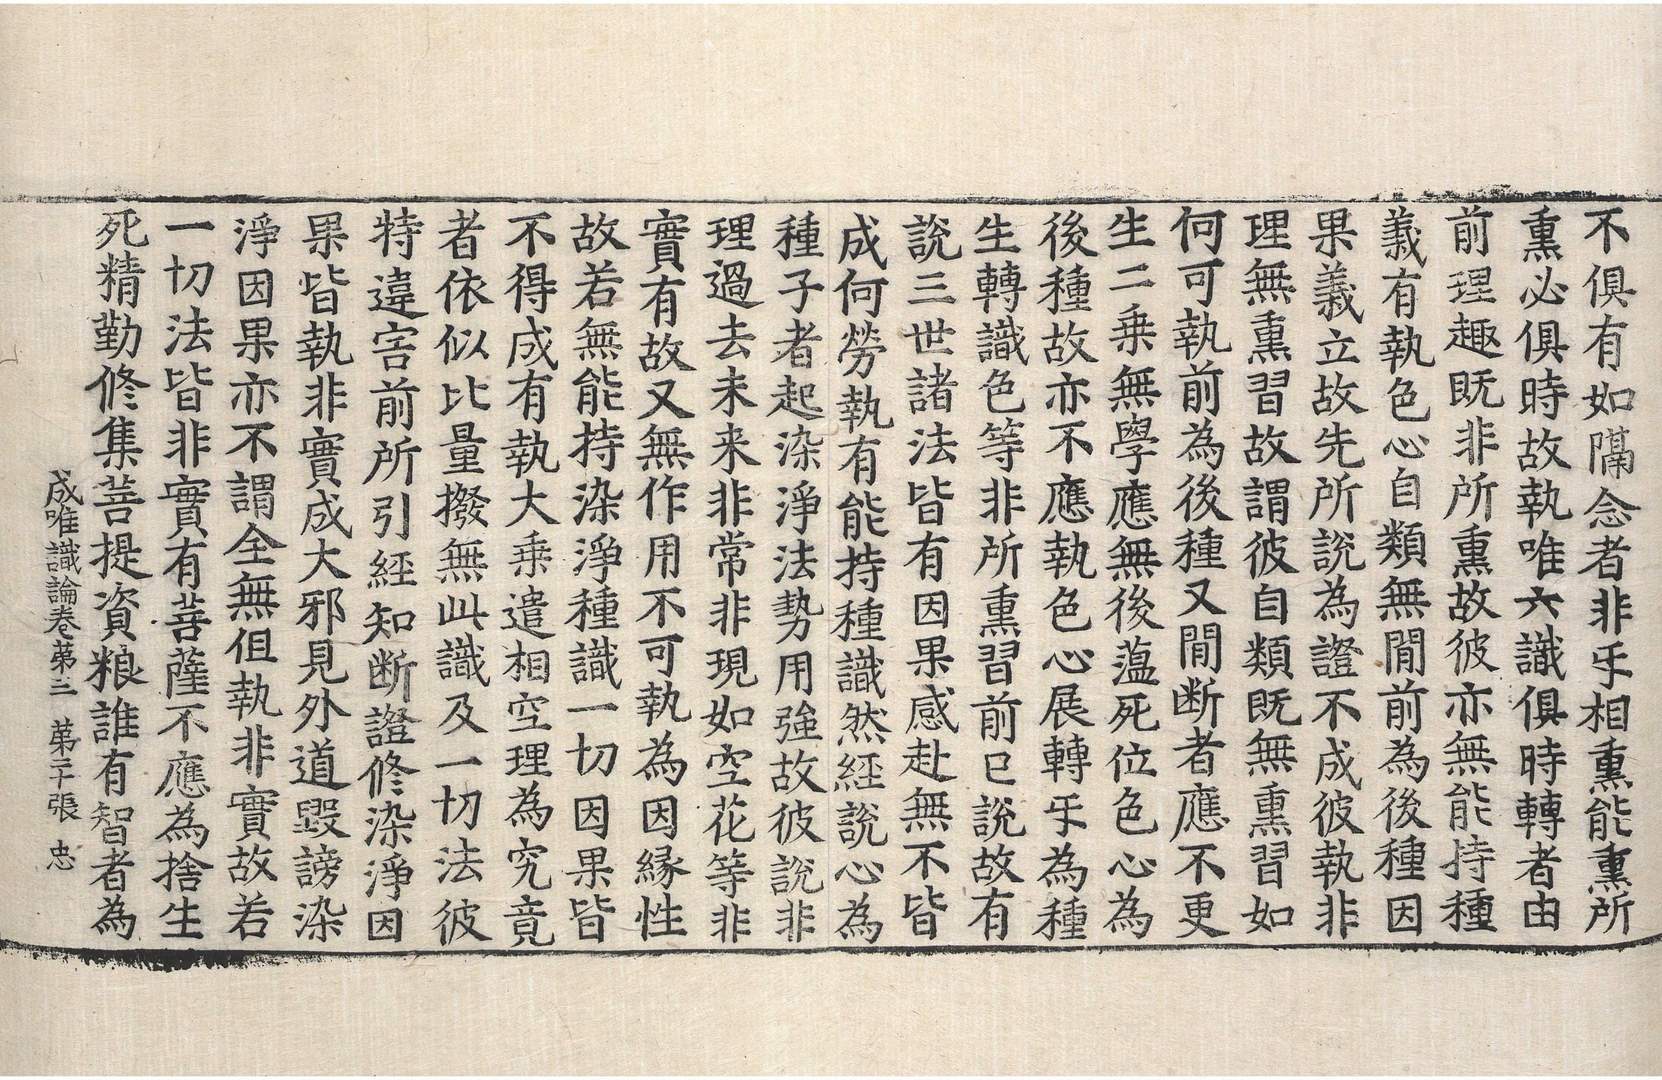 不俱有如隔念者非㸦相熏能熏所
熏必俱時故執唯六識俱時轉者由
前理趣既非所熏故彼亦無能持種
義有執色心自類無間前為後種因
果義立故先所說為證不成彼執非
理無熏習故謂彼自類既無熏習如
何可執前為後種又間断者應不更
生二乘無學應無後蕰死位色心為
後種故亦不應執色心展轉㸦為種
生轉識色等非所熏習前已說故有
說三世諸法皆有因果感赴無不皆
成何勞執有能持種識然經說心為
種子者起染淨法勢用強故彼說非
理過去未来非常非現如空花等非
實有故又無作用不可執為因緣性
故若無能持染淨種識一切因果皆
不得成有執大乘遣相空理為究竟
者依似比量撥無此識及一切法彼
特違害前所引經知断證修染淨因
果皆執非實成大邪見外道毀謗染
淨因果亦不謂全無但執非實故若
一切法皆非實有菩薩不應為捨生
死精勤修集菩提資粮誰有智者為
成唯識論卷第三 第二十張 忠